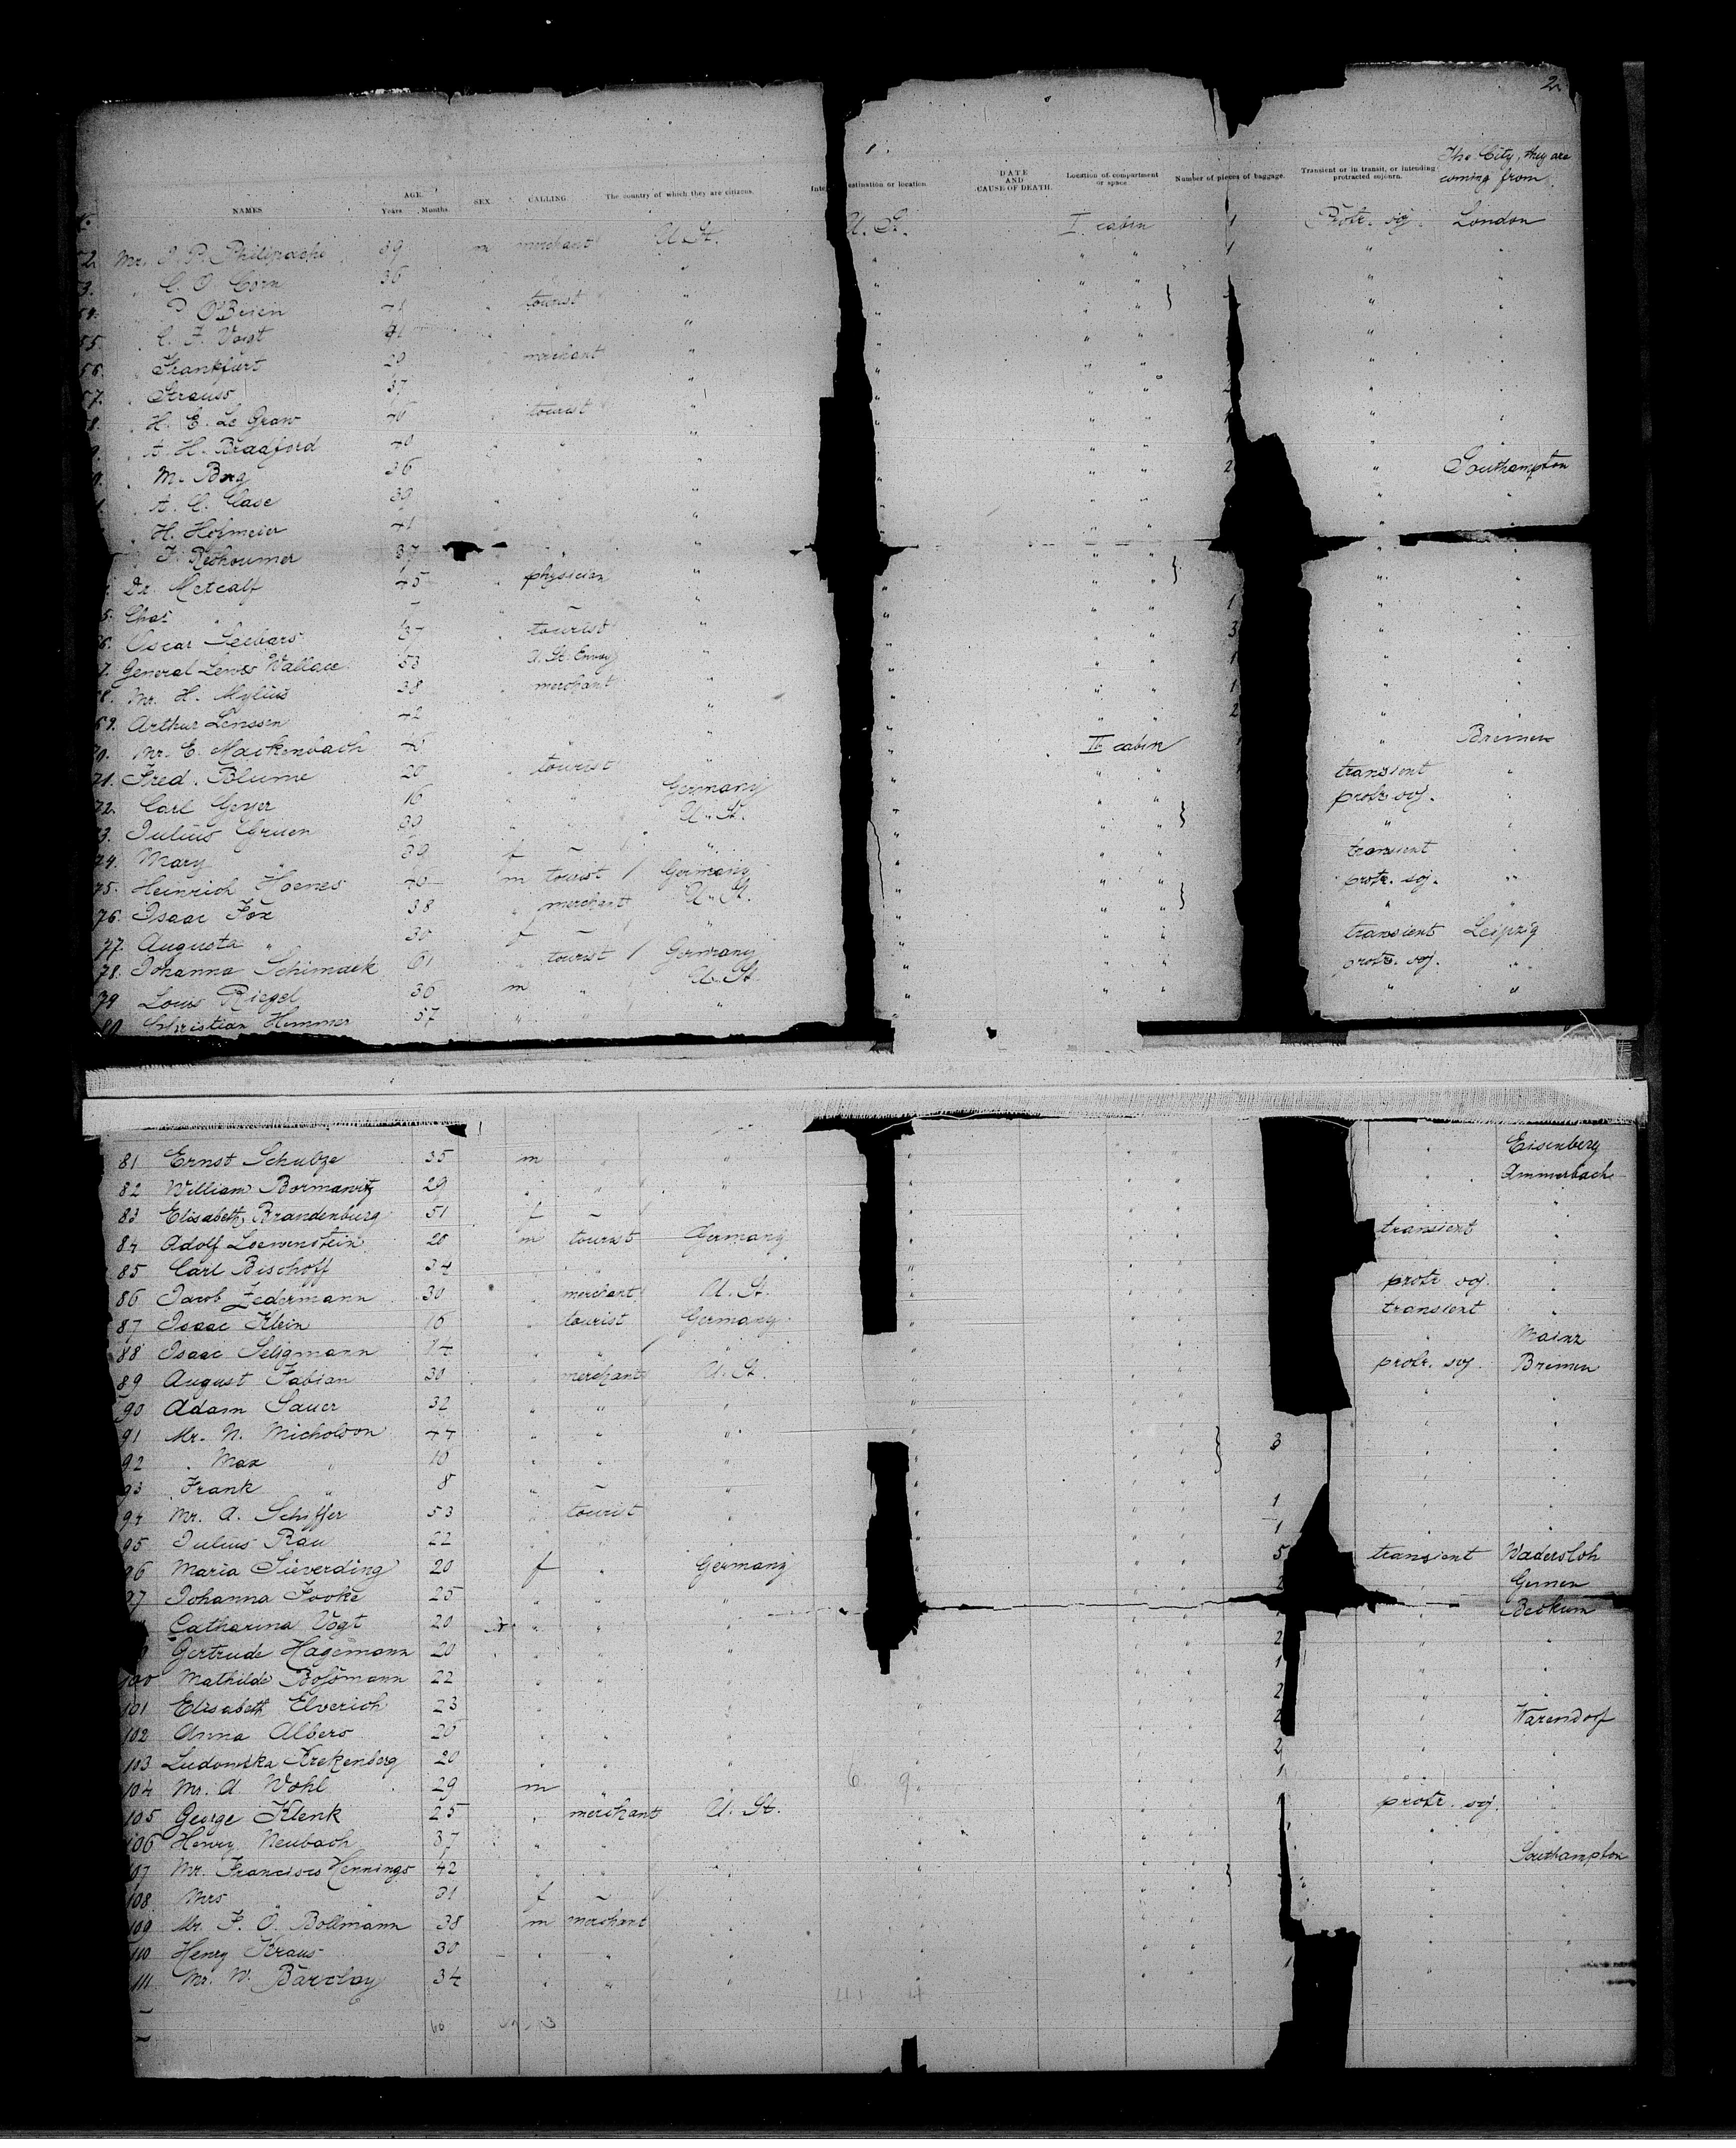 2
The City, they are coming from.
NAMES AGE. Years. Months. SEX. CALLING. The country of which they are citizens. destination or location. DATE AND CAUSE OF DEATH. Location of compartment or space. Number of pieces of baggage. Transient or in transit, or intending protracted sojourn.
Mr. 39 m merchant U. St. U. St. I. cabin 1 Protr. soj. London
" C. O. Corn 36 " " " " " 1 " "
" P. O'Brien 41 " tourist " " " " } " "
55. " C. F. Vogt 41 " " " " " " "
56. " Frankfurt 29 " merchant " " " " " "
57. " Strauss 37 " " " " " " " "
8. " H. E. Le Graw " tourist " " " " " "
" A. H. Bradford 40 " " " " " " " "
" M. Borg 36 " " " " " 2 " Southampton
" A. C. Case 39 " " " " " " "
" H. Hofmeier 41 " " " " " " "
" F. 37 " " " " " " "
Dr. Metcalf 45 " physician " " " " } " "
5. Chas " – " – " " " " 1 " "
66. Oscar Seebars 37 " tourist " " " " 3 " "
7. General Lewis Wallace 53 " U. St. Envoy " " " " 1 " "
8. Mr. H. Mylius 38 " merchant " " " " 1 " "
69. Arthur Lenssen 42 " " " " " " 2 " "
70. Mr. E. Mackenbach " " " " II. cabin 1 " Bremen
71. Fred. Blume 20 " tourist " " " " transient "
72. Carl Geyer 16 " " Germany " " " protr. soj. "
73. Julius Gruen 39 " " U. St. " " " } " "
74. Mary " 39 f – " " " " transient "
75. Heinrich Hoenes 40 m tourist / Germany " " " protr. soj. "
76. Isaac Fox 38 " merchant U. St. " " " } " "
77. Augusta " 30 f – " " " " transient Leipzig
78. Johanna Schimack 61 " tourist / Germany " " " protr. soj. "
79 Louis Riegel 36 m " U. St. " " " " "
80 Christian Hemmer 57 " " "
81 Ernst Schulze 35 m " " " " " " Eisenberg
82 William Bormanwitz 29 " " " " " " " Ammerbach
83 Elisabeth Brandenburg 51 f – " " " " " "
84 Adolf Loewenstein m tourist Germany " " " transient "
85 Carl Bischoff 34 " " " " " "
86 Jacob Zedermann 30 " merchant U. St. " " " protr. soj. "
87 Isaac Klein 16 " tourist Germany " " " transient "
88 Isaac Seligmann 14 " " " " " " " Mainz
89 August Fabian 30 " merchant U. St. " " " protr. soj. Bremen
90 Adam Sauer 32 " " " " " " " "
91 Mr. N. Micholson 44 " " " " " " " "
92 " Max " 10 " " " " " } 3 " "
93 Frank " 8 " – " " " " " "
94 Mr. A. Schiffer 53 " tourist " " " " 1 " "
95 Julius Rau 22 " " " " " " 1 " "
96 Maria Sieverding 20 f " Germany " " " 5 transient Wadersloh
97 Johanna Fooke 25 " " " " " " 2 " Gemen
Catharina Vogt 20 " " " " " " " Beckum
Gertrude Hagemann 20 " " " " " " 2 " "
100 Mathilde Boßmann 22 " " " " " " 1 " "
101 Elisabeth Elverich 23 " " " " " " 2 " "
102 Anna Albers " " " " " " 2 " Warendorf
103 Ludowika Krekenberg 20 " " " " " " 2 " "
104 Mr. A. Wohl 29 m " " 6 9 " " 1 " "
105 George Klenk 25 " merchant U. St. " " 1 protr. soj. "
106 Henry Neubach 37 " " " " " " "
107 Mr. Francisco Hennings 42 " " " " " " } " Southampton
108 Mrs " 31 f – " " " " " "
109 Mr. F. O. Bollmann 38 m merchant " " " " " "
110 Henry Kraus 30 " " " " " " " "
111 Mr. W. Barclay 34 " " " " " " " "